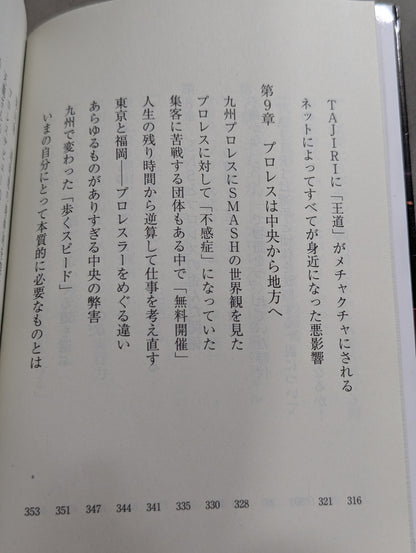 TAJIRIに「王道」がメチャクチャにされる 316
ネットによってすべてが身近になった悪影響 321
第9章 プロレスは中央から地方へ
九州プロレスにSMASHの世界観を見た 328
プロレスに対して「不感症」になっていた 330
集客に苦戦する団体もある中で「無料開催」 335
人生の残り時間から逆算して仕事を考え直す 341
東京と福岡――プロレスラーをめぐる違い 344
あらゆるものがありすぎる中央の弊害 347
九州で変わった「歩くスピード」 351
いまの自分にとって本質的に必要なものとは 353